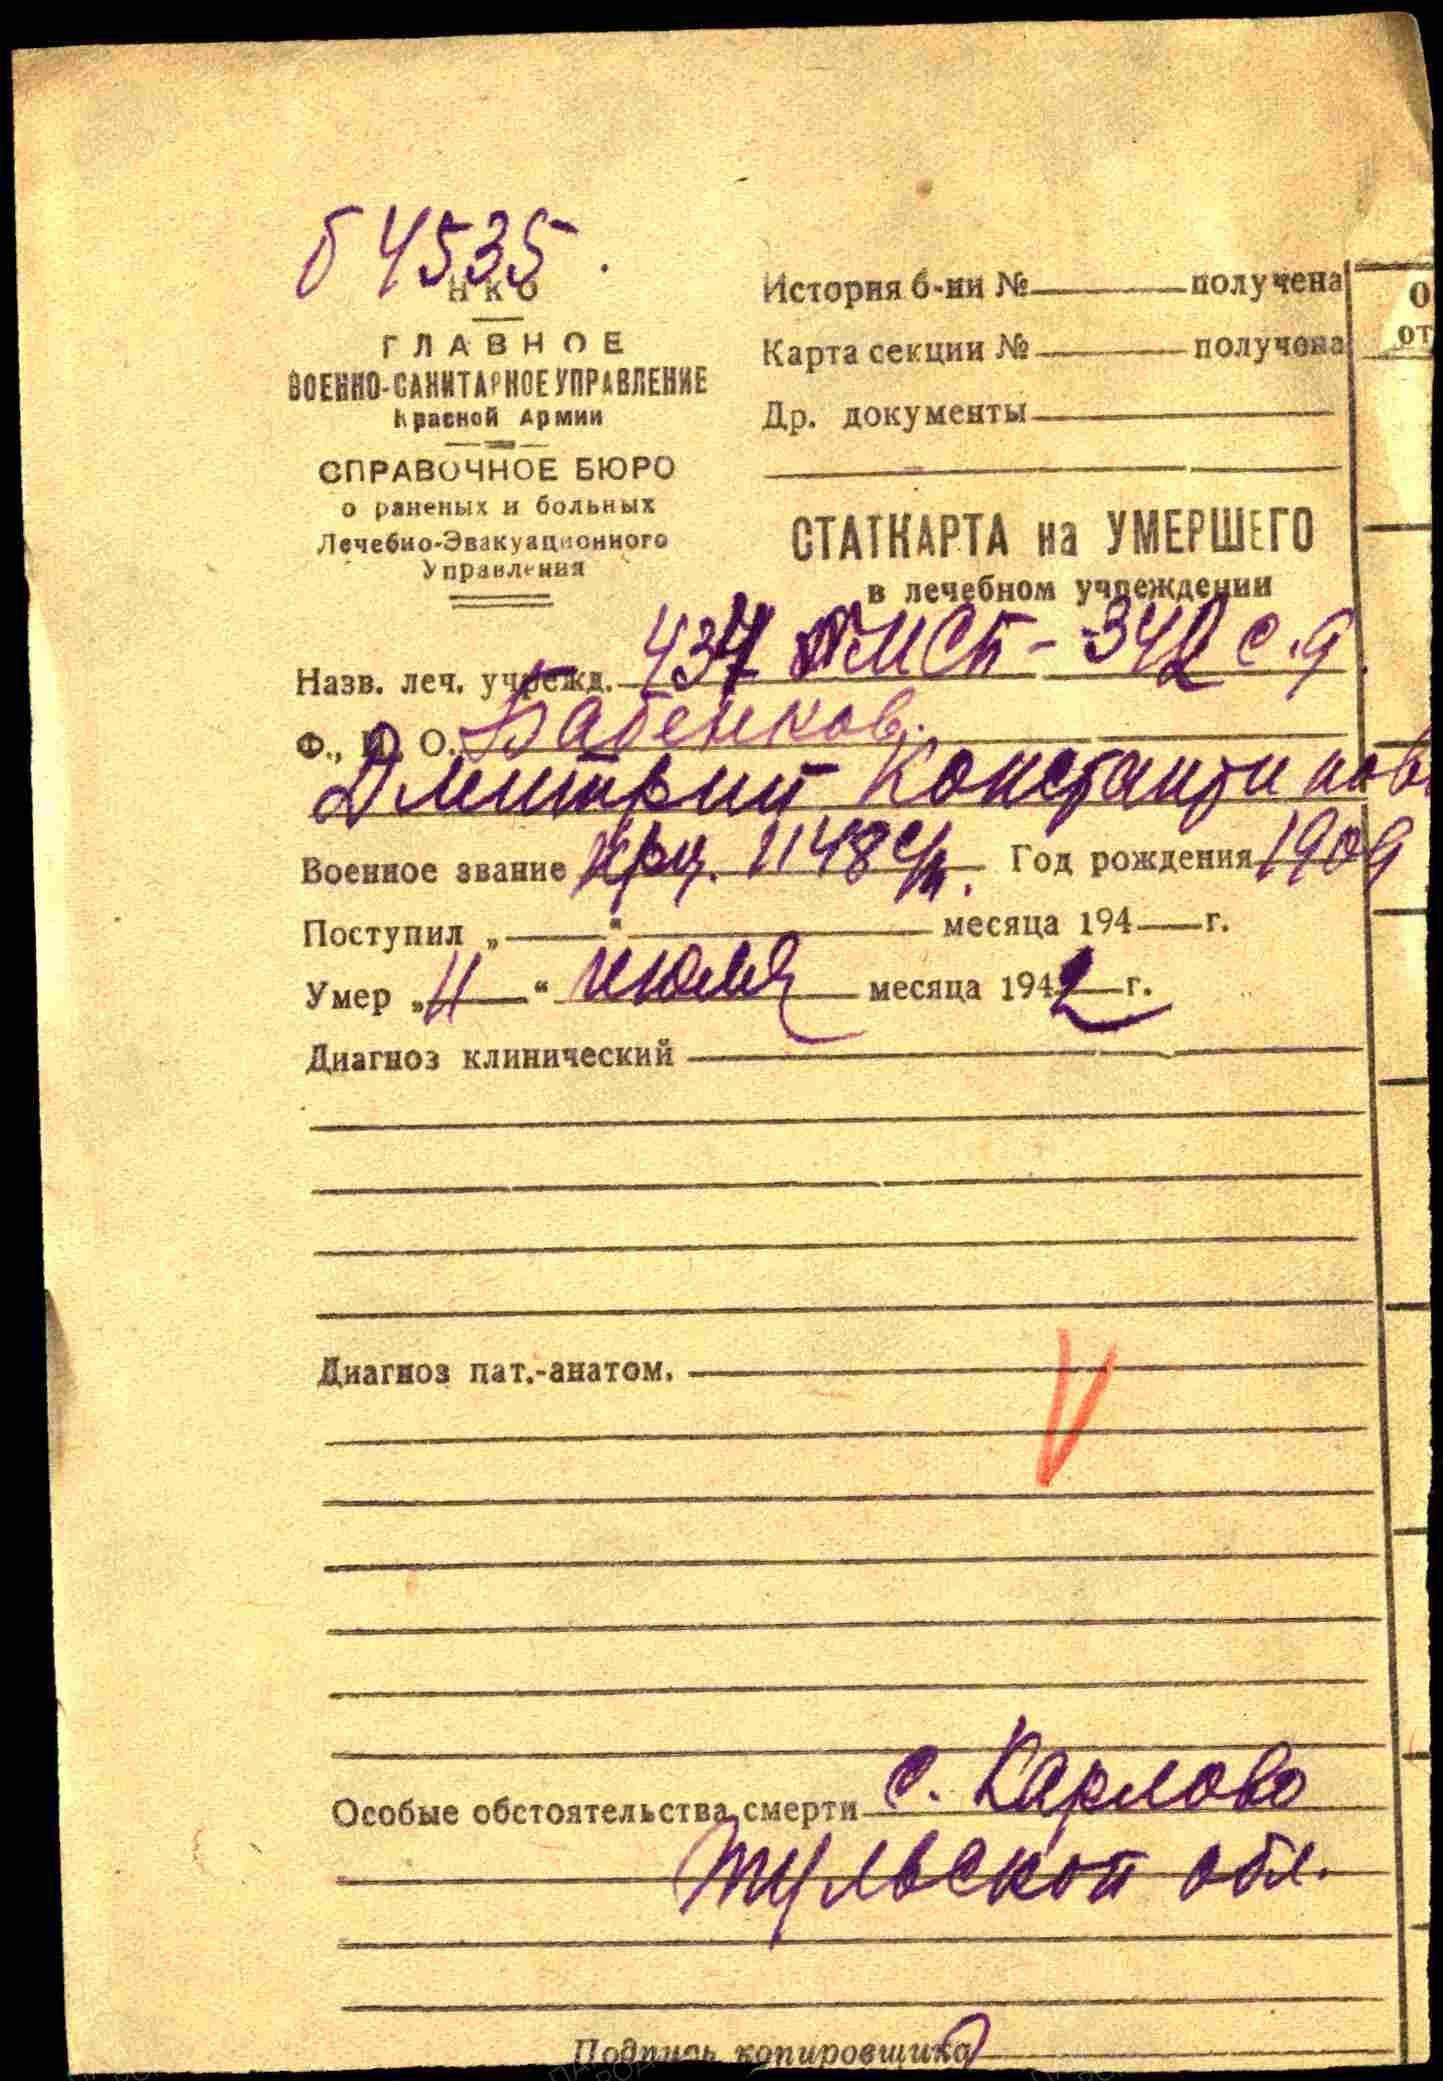 б 4535.
НКО
ГЛАВНОЕ
ВОЕННО-САНИТАРНОЕ УПРАВЛЕНИЕ
Красной Армии
СПРАВОЧНОЕ БЮРО
о раненых и больных
Лечебно-Эвакуационного
Управления
История б-ни № получена
Карта секции № получена
Др. документы
О
от
СТАТКАРТА на УМЕРШЕГО
в лечебном учреждении
Назв. леч. учрежд. 437 МСБ - 342 с.д.
Ф., И. О. Бабенков.
Дмитрий Константинов
Военное звание кр-ц. 1148 с/п. Год рождения 1909
Поступил „ “ месяца 194 г.
Умер „11“ июля месяца 1942 г.
Диагноз клинический
Диагноз пат.-анатом.
Особые обстоятельства смерти с. Карлово
Тульской обл.
Подпись копировщика